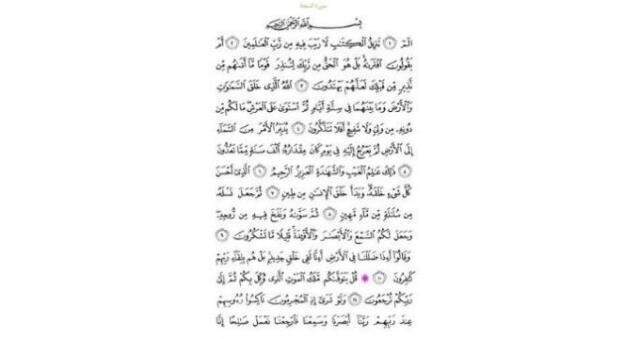 سورة السجدة
بسم الله الرحمن الرحيم
الم ١ تنزيل الكتب لا ريب فيه من رب العلمين ٢ أم
يقولون افترىه بل هو الحق من ربك لتنذر قوما ما أتىهم من
نذير من قبلك لعلهم يهتدون ٣ الله الذى خلق السموت
والأرض وما بينهما فى ستة أيام ثم استوى على العرش ما لكم من
دونه من ولى ولا شفيع أفلا تتذكرون ٤ يدبر الأمر من السماء
إلى الأرض ثم يعرج إليه فى يوم كان مقداره ألف سنة مما تعدون
٥ ذلك علم الغيب والشهدة العزيز الرحيم ٦ الذى أحسن
كل شىء خلقه وبدأ خلق الإنسن من طين ٧ ثم جعل نسله
من سللة من ماء مهين ٨ ثم سوىه ونفخ فيه من روحه
وجعل لكم السمع والأبصر والأفئدة قليلا ما تشكرون ٩
وقالوا أءذا ضللنا فى الأرض أءنا لفى خلق جديد بل هم بلقاء ربهم
كفرون ١٠ قل يتوفىكم ملك الموت الذى وكل بكم ثم إلى
ربكم ترجعون ١١ ولو ترى إذ المجرمون ناكسوا رءوسهم
عند ربهم ربنا أبصرنا وسمعنا فارجعنا نعمل صلحا إنا